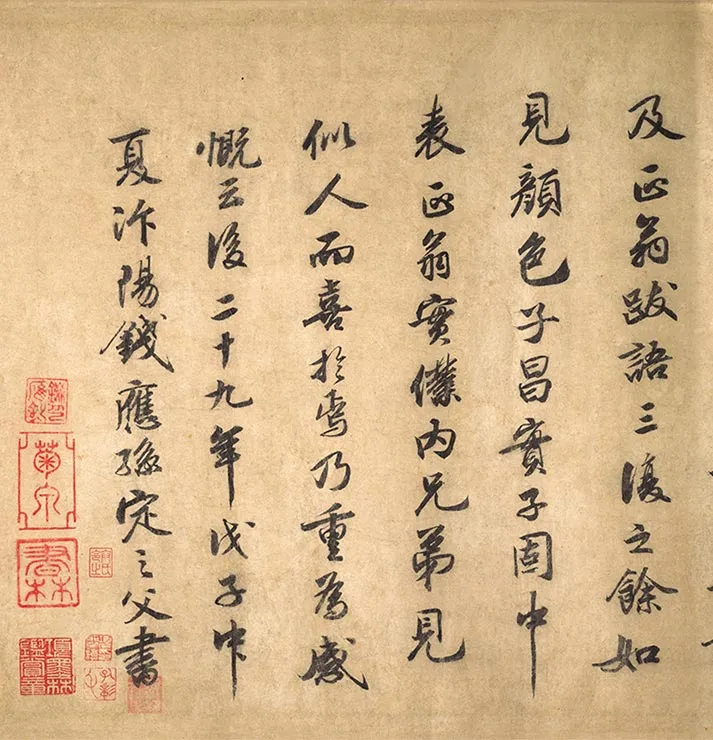 及正翁跋語三復之餘如
見顏色子昌實子固中
表正翁實僕内兄弟見
似人而喜於焉乃重為感
慨云後二十九年戊子中
夏汴陽錢應孫定之父書
項墨林鑑賞章